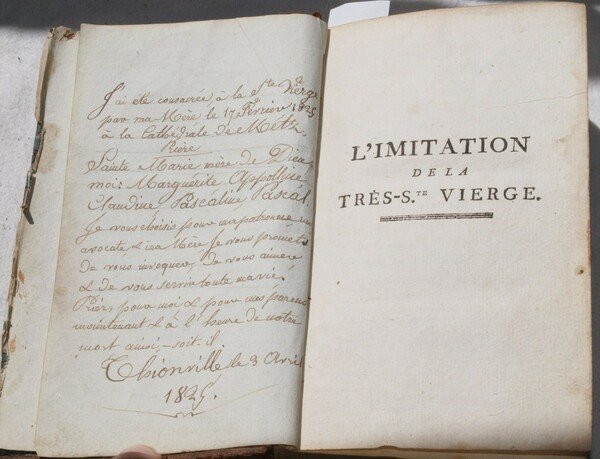 J'ai été consacrée à la Ste Vierge
par ma Mère le 17 Février 1825
à la Cathédrale de Metz.
Prière
Sainte Marie mère de Dieu,
moi: Marguérite Appolline
Claudine Pascaline Pascál
Je vous choisis pour ma patronne mon
avocate, & ma Mère Je vous promets
de vous invoquer, de vous aimer
& de vous servir toute ma vie.
Priez pour moi & pour mes parens
maintenant & à l'heure de notre
mort ainsi-soit-il.
Thionville le 3 Avril
1825.
L'IMITATION
DE LA
TRÈS-S.TE VIERGE.